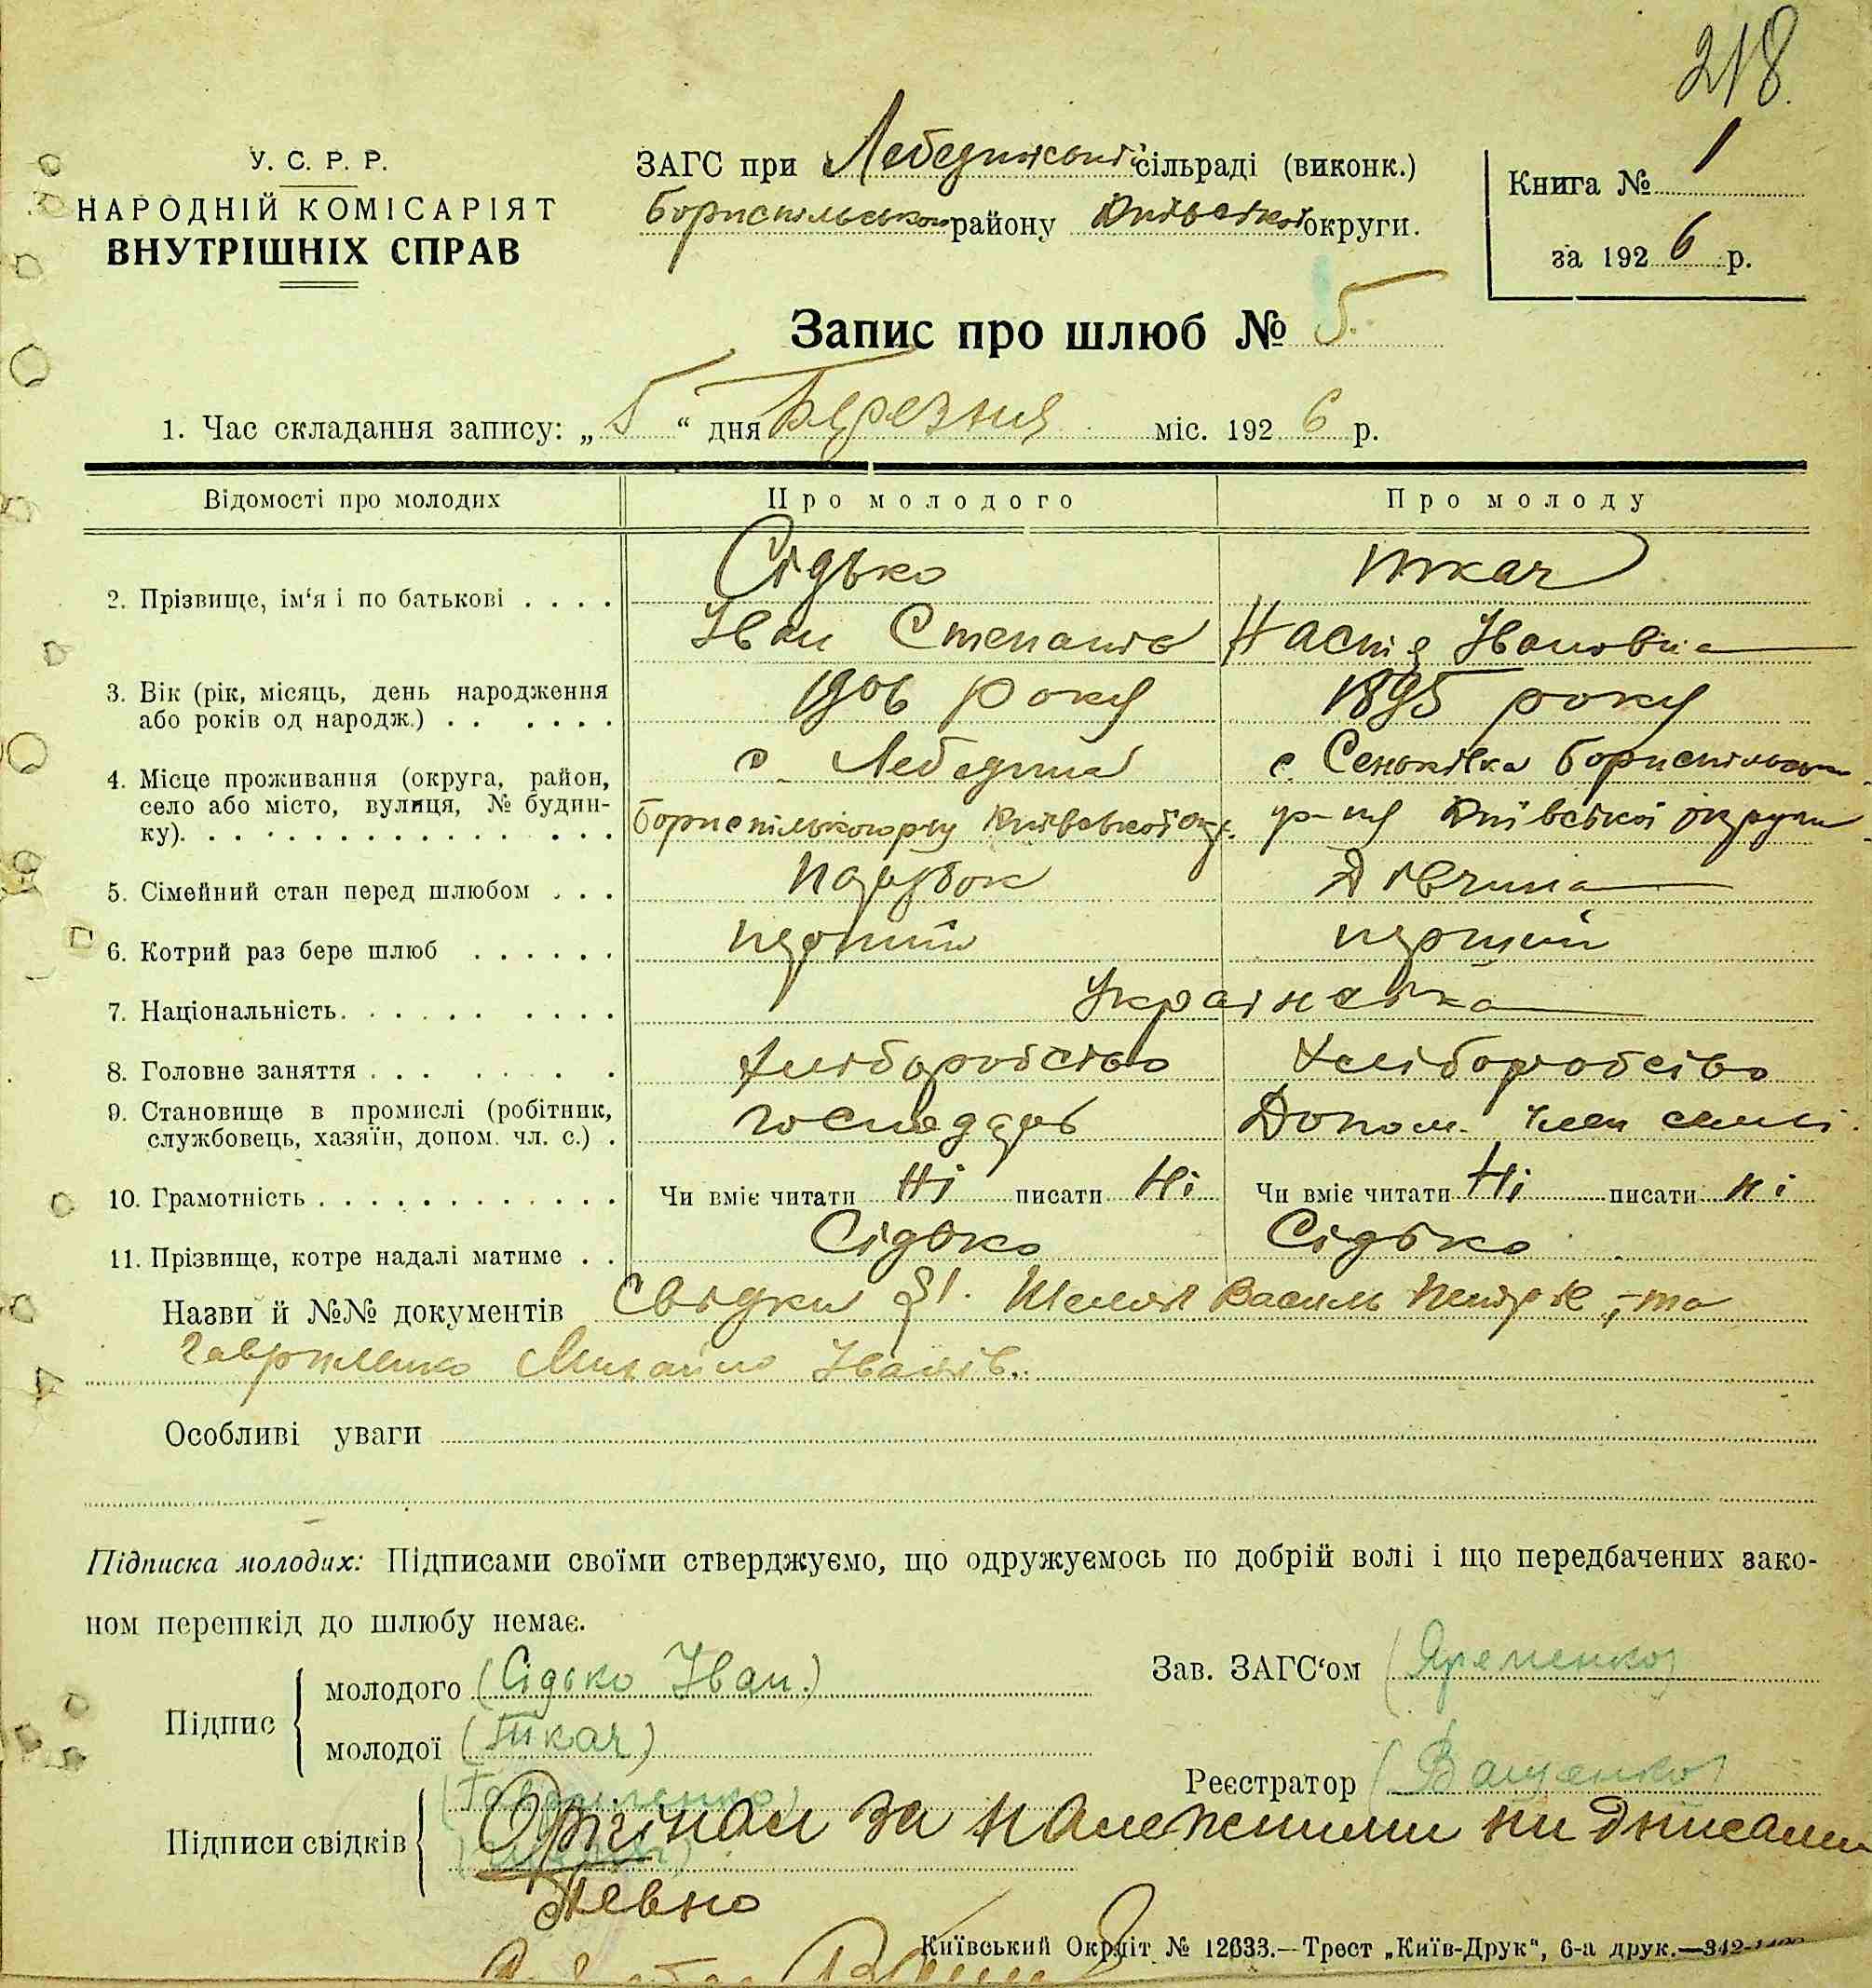 218.
У. С. Р. Р.
НАРОДНІЙ КОМІСАРІЯТ
ВНУТРІШНІХ СПРАВ
ЗАГС при Лебединській сільраді (виконк.)
Бориспільського району Київської округи.
Книга № 1
за 1926 р.
Запис про шлюб № 5.
1. Час складання запису: „5“ дня Березня міс. 1926 р.
Відомості про молодих Про молодого Про молоду
2. Прізвище, ім‘я і по батькові . . . . Сідько Ткач
Іван Степанів Настя Івановна
3. Вік (рік, місяць, день народження 1906 року 1895 року
або років од народж.) . . . . . .
4. Місце проживання (округа, район, с. Лебедин с. Сеньківка Бориспільськ.
село або місто, вулиця, № будин-
ку). Бориспільського р-ну Київської окр. р-ну Київської округи
5. Сімейний стан перед шлюбом . . . Парубок Дівчина
6. Котрий раз бере шлюб . . . . . . перший перший
7. Національність. Українська
8. Головне заняття . . . Хліборобство Хліборобство
9. Становище в промислі (робітник, господарь Допом. член семї
службовець, хазяїн, допом. чл. с.) .
10. Грамотність Чи вміє читати Ні писати Ні Чи вміє читати Ні писати ні
11. Прізвище, котре надалі матиме . . Сідько Сідько
Назви й №№ документів Свідки Василь та
Гавриленко Михайло Іванів.
Особливі уваги
Підписка молодих: Підписами своїми стверджуємо, що одружуємось по добрій волі і що передбачених зако-
ном перешкід до шлюбу немає.
Підпис
молодого (Сідько Іван.)
молодої (Ткач)
Зав. ЗАГС‘ом (Яременко)
Реєстратор (Ващенко)
Підписи свідків (Гавриленко)
Оригінал за належними підписами
Певно
Київський Окрліт № 12633.—Трест „Київ-Друк“, 6-а друк.—342-